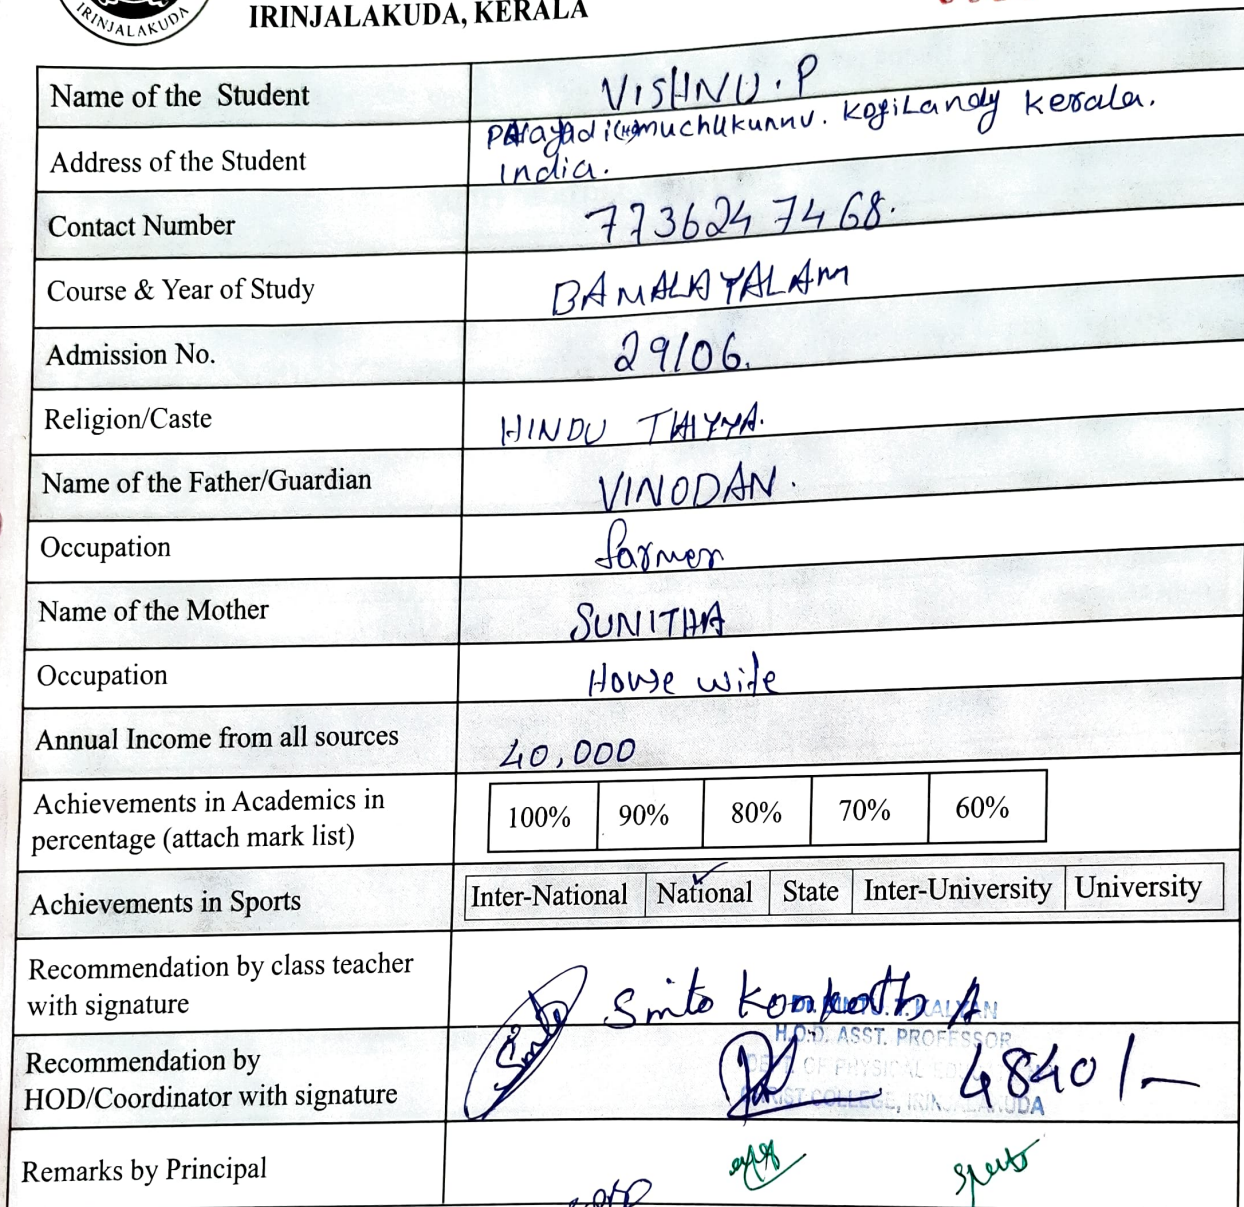 IRINJALAKUDA
IRINJALAKUDA, KERALA
Name of the Student VISHNU.P
Address of the Student muchukunnu. Koyilandy Kerala.
India.
Contact Number 7736247468.
Course & Year of Study BA MALAYALAM
Admission No. 29/06.
Religion/Caste HINDU THIYYA.
Name of the Father/Guardian VINODAN.
Occupation farmer
Name of the Mother SUNITHA
Occupation House wife
Annual Income from all sources 40,000
Achievements in Academics in
percentage (attach mark list) 100% 90% 80% 70% 60%
Achievements in Sports Inter-National National State Inter-University University
Recommendation by class teacher
with signature Smita
H.O.D. ASST. PROFESSOR
Recommendation by
HOD/Coordinator with signature 4840/-
DEPT. OF PHYSICAL
CHRIST COLLEGE, IRINJALAKUDA
Remarks by Principal Sports